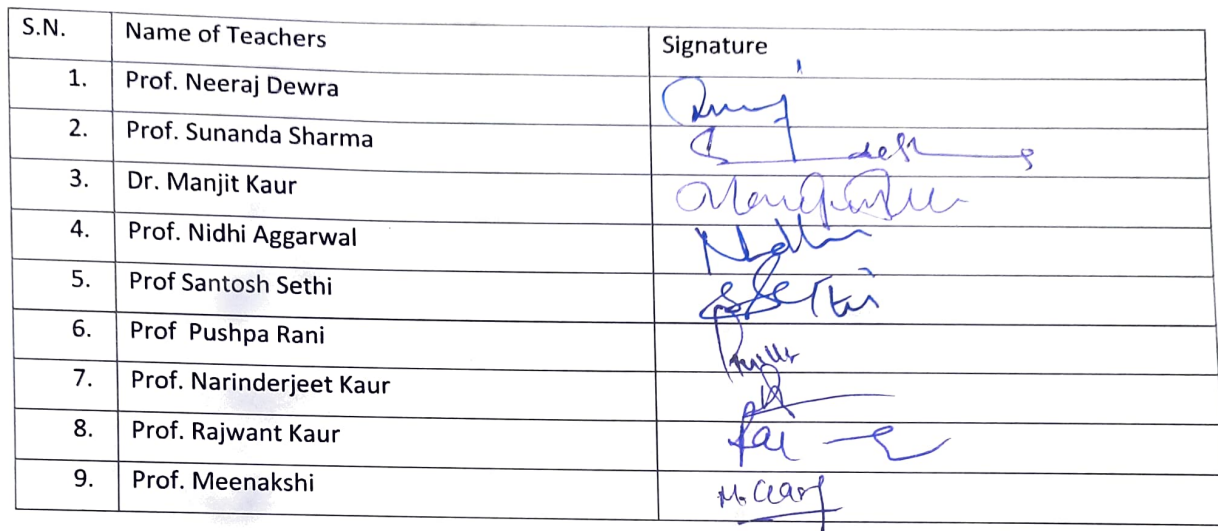 S.N. Name of Teachers Signature
1. Prof. Neeraj Dewra
2. Prof. Sunanda Sharma
3. Dr. Manjit Kaur
4. Prof. Nidhi Aggarwal
5. Prof Santosh Sethi SSethi
6. Prof Pushpa Rani
7. Prof. Narinderjeet Kaur
8. Prof. Rajwant Kaur
9. Prof. Meenakshi